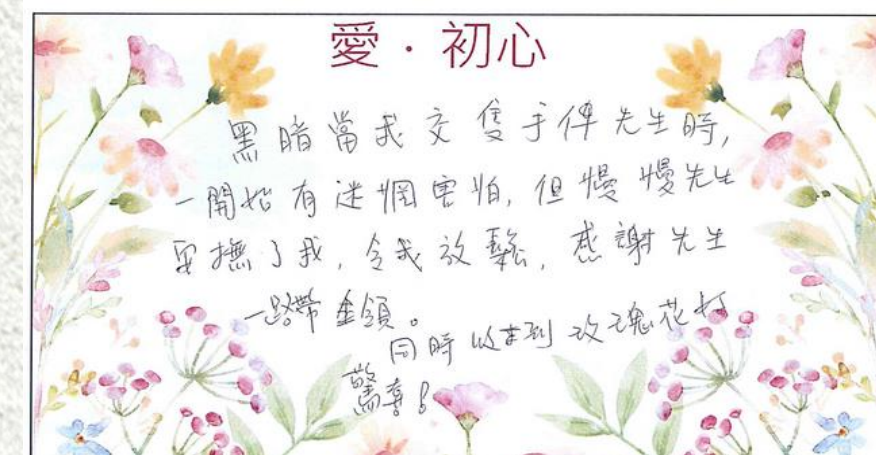 愛·初心
黑暗當我交隻手俾先生時,
一開始有迷惘害怕,但慢慢先生
安撫了我,令我放鬆,感謝先生
一路帶領。
同時收到玫瑰花好
驚喜!